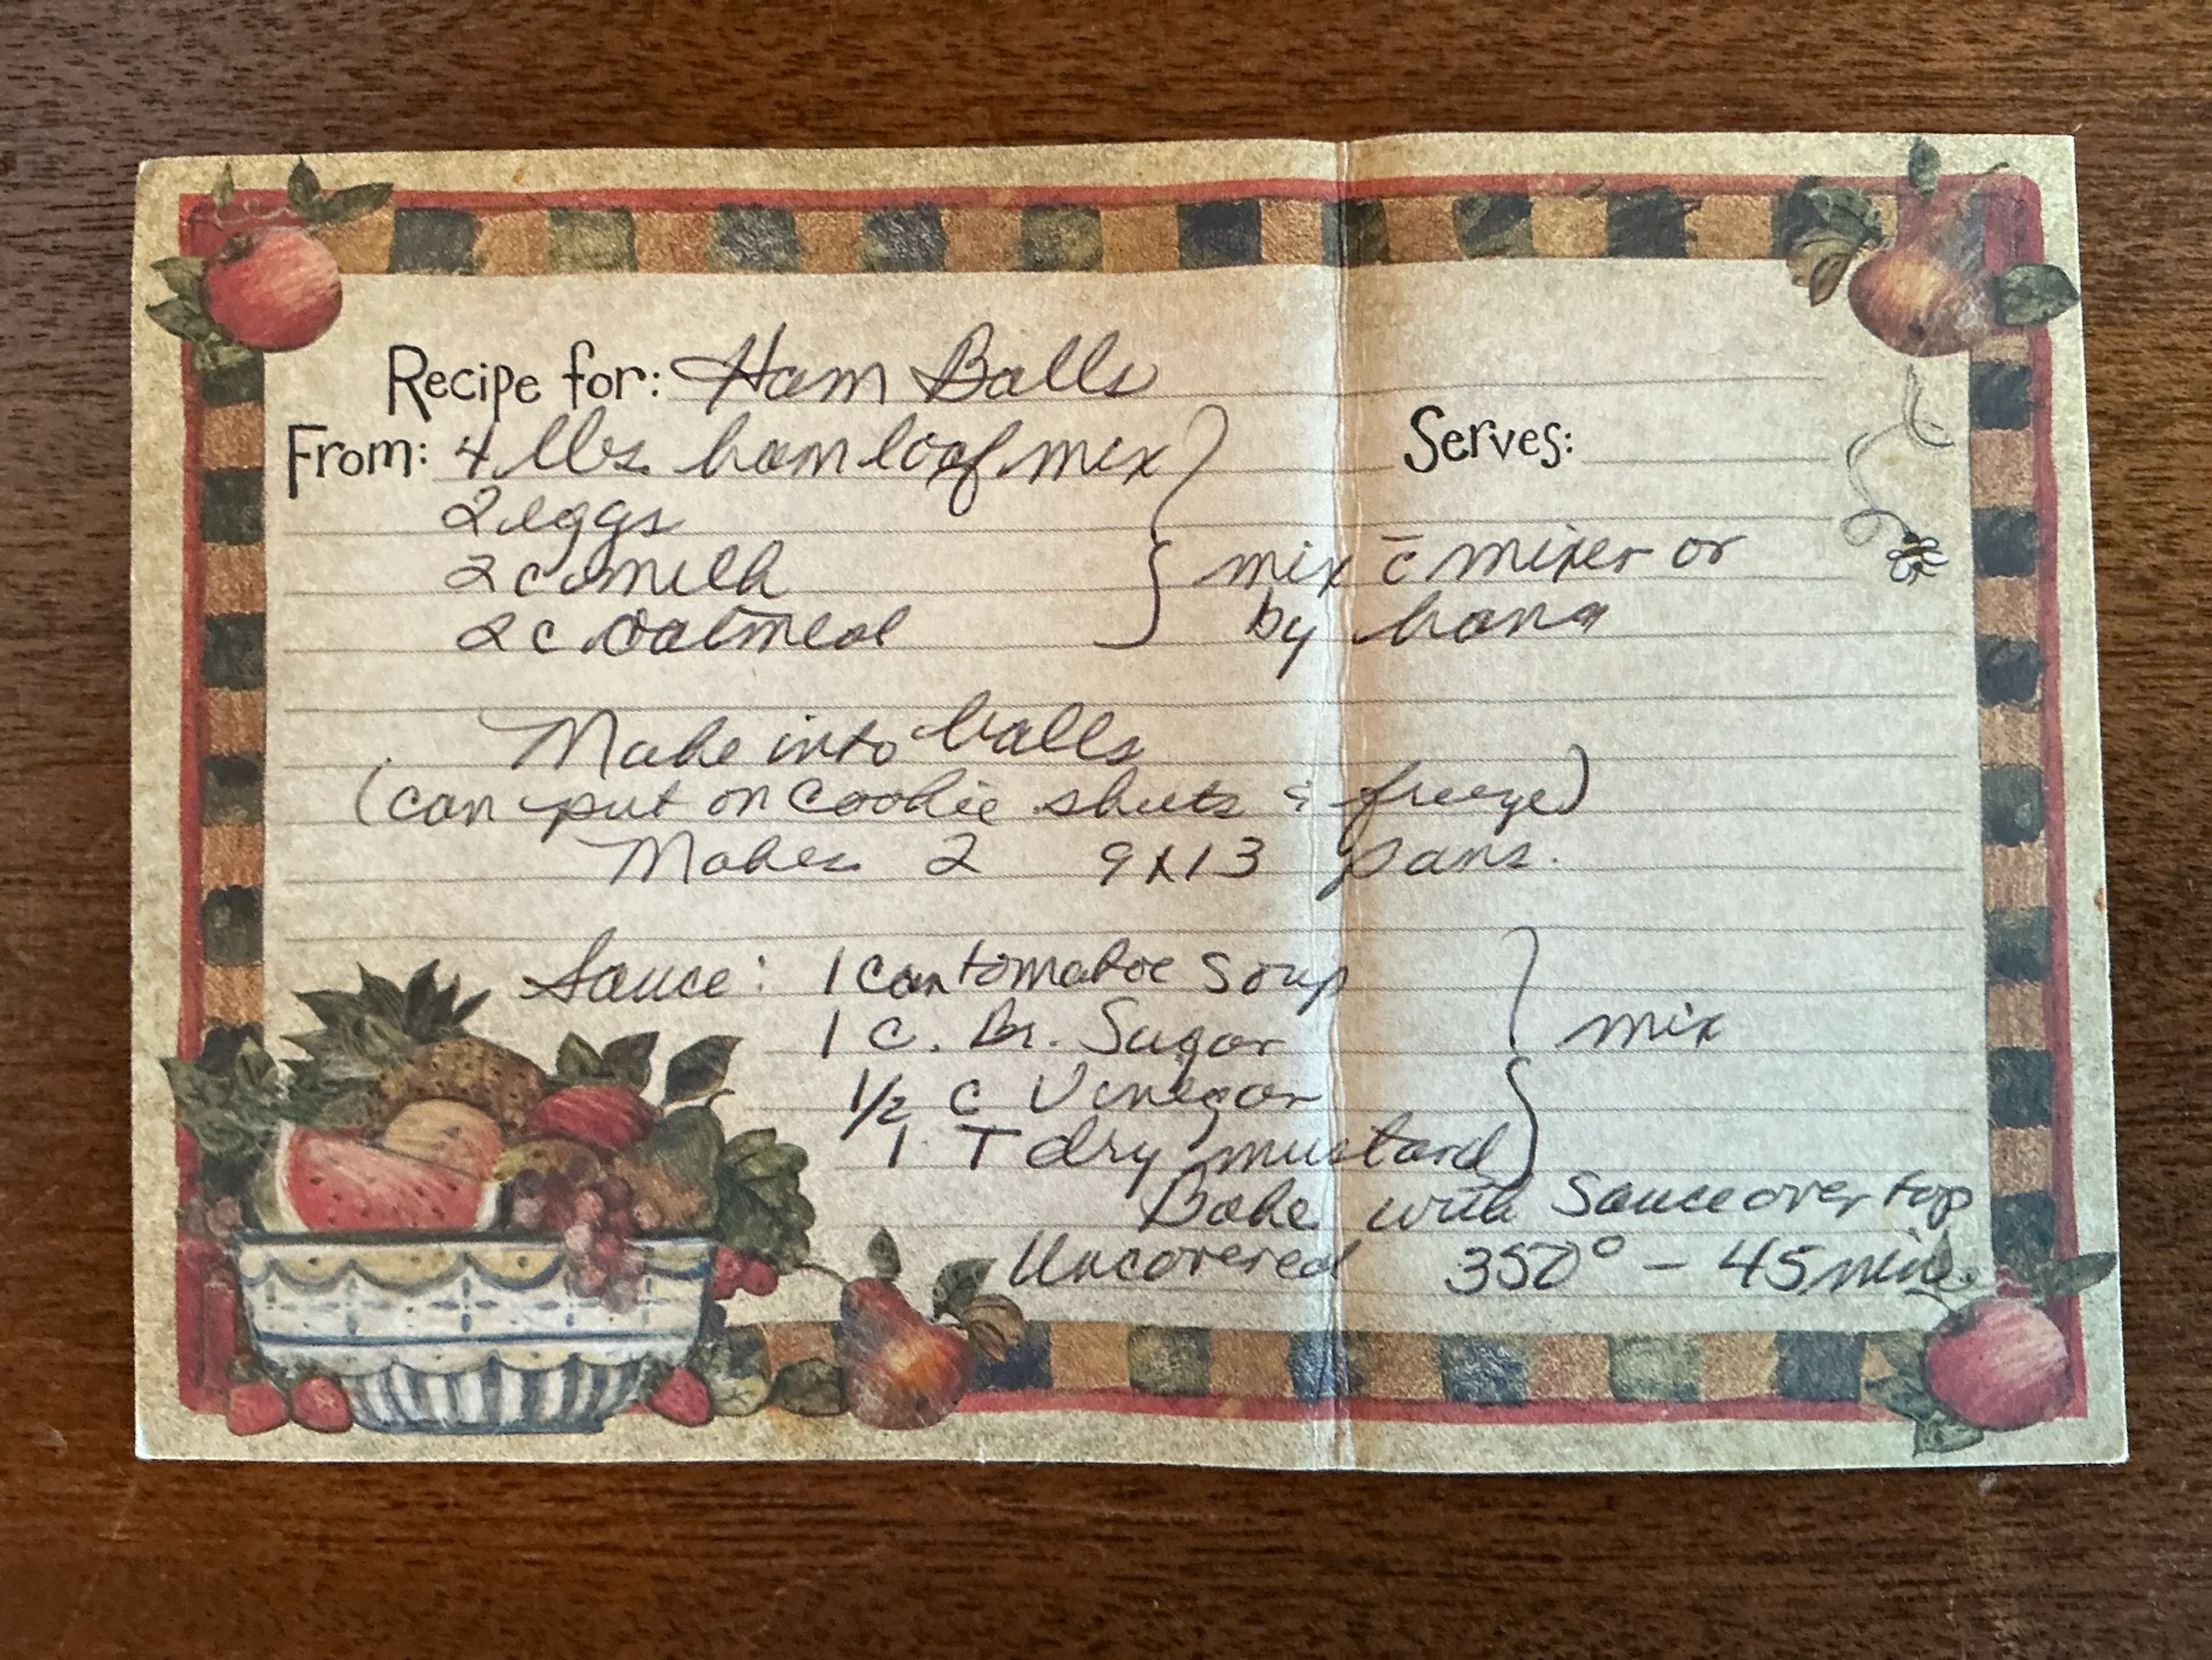 Recipe for: Ham Balls
From: 4 lbs. ham loaf mix
Serves:
2 eggs
2 c milk
2 c oatmeal
mix c̄ mixer or
by hand
Make into balls
(can put on cookie sheets & freeze)
Makes 2 9x13 pans.
Sauce: 1 can tomatoe soup
1 c. Br. Sugar
mix
1/2 c Vinegar
1 T dry mustard
Bake with Sauce over top
Uncovered 350° - 45 min.